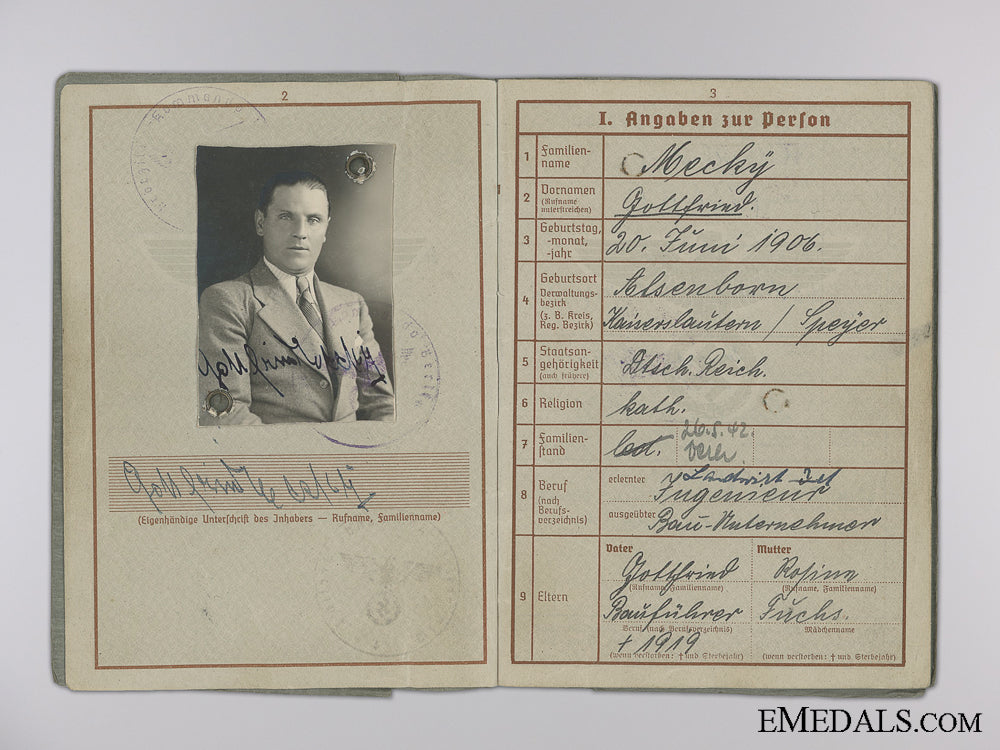 2
(Eigenhändige Unterschrift des Inhabers — Rufname, Familienname)
3
I. Angaben zur Person
1 Familien-
name
Mecky
2 Vornamen
(Rufname
unterstreichen)
Gottfried.
3 Geburtstag,
-monat,
-jahr
20. Juni 1906.
4 Geburtsort
Verwaltungs-
bezirk
(z. B. Kreis,
Reg. Bezirk)
Alsenborn
Kaiserslautern / Speyer
5 Staatsan-
gehörigkeit
(auch frühere)
Dtsch. Reich.
6 Religion
kath.
7 Familien-
stand
led. 26.5.42.
verh.
8 Beruf
(nach
Berufs-
verzeichnis)
erlernter
Landwirt
Ingenieur
ausgeübter Bau-Unternehmer
9 Eltern
Vater
Gottfried
(Rufname, Familienname)
Bauführer
Beruf (nach Berufsverzeichnis)
† 1919
(wenn verstorben: † und Sterbejahr)
Mutter
Rosine
(Rufname, Familienname)
Fuchs.
Mädchenname
(wenn verstorben: † und Sterbejahr)
EMEDALS.COM